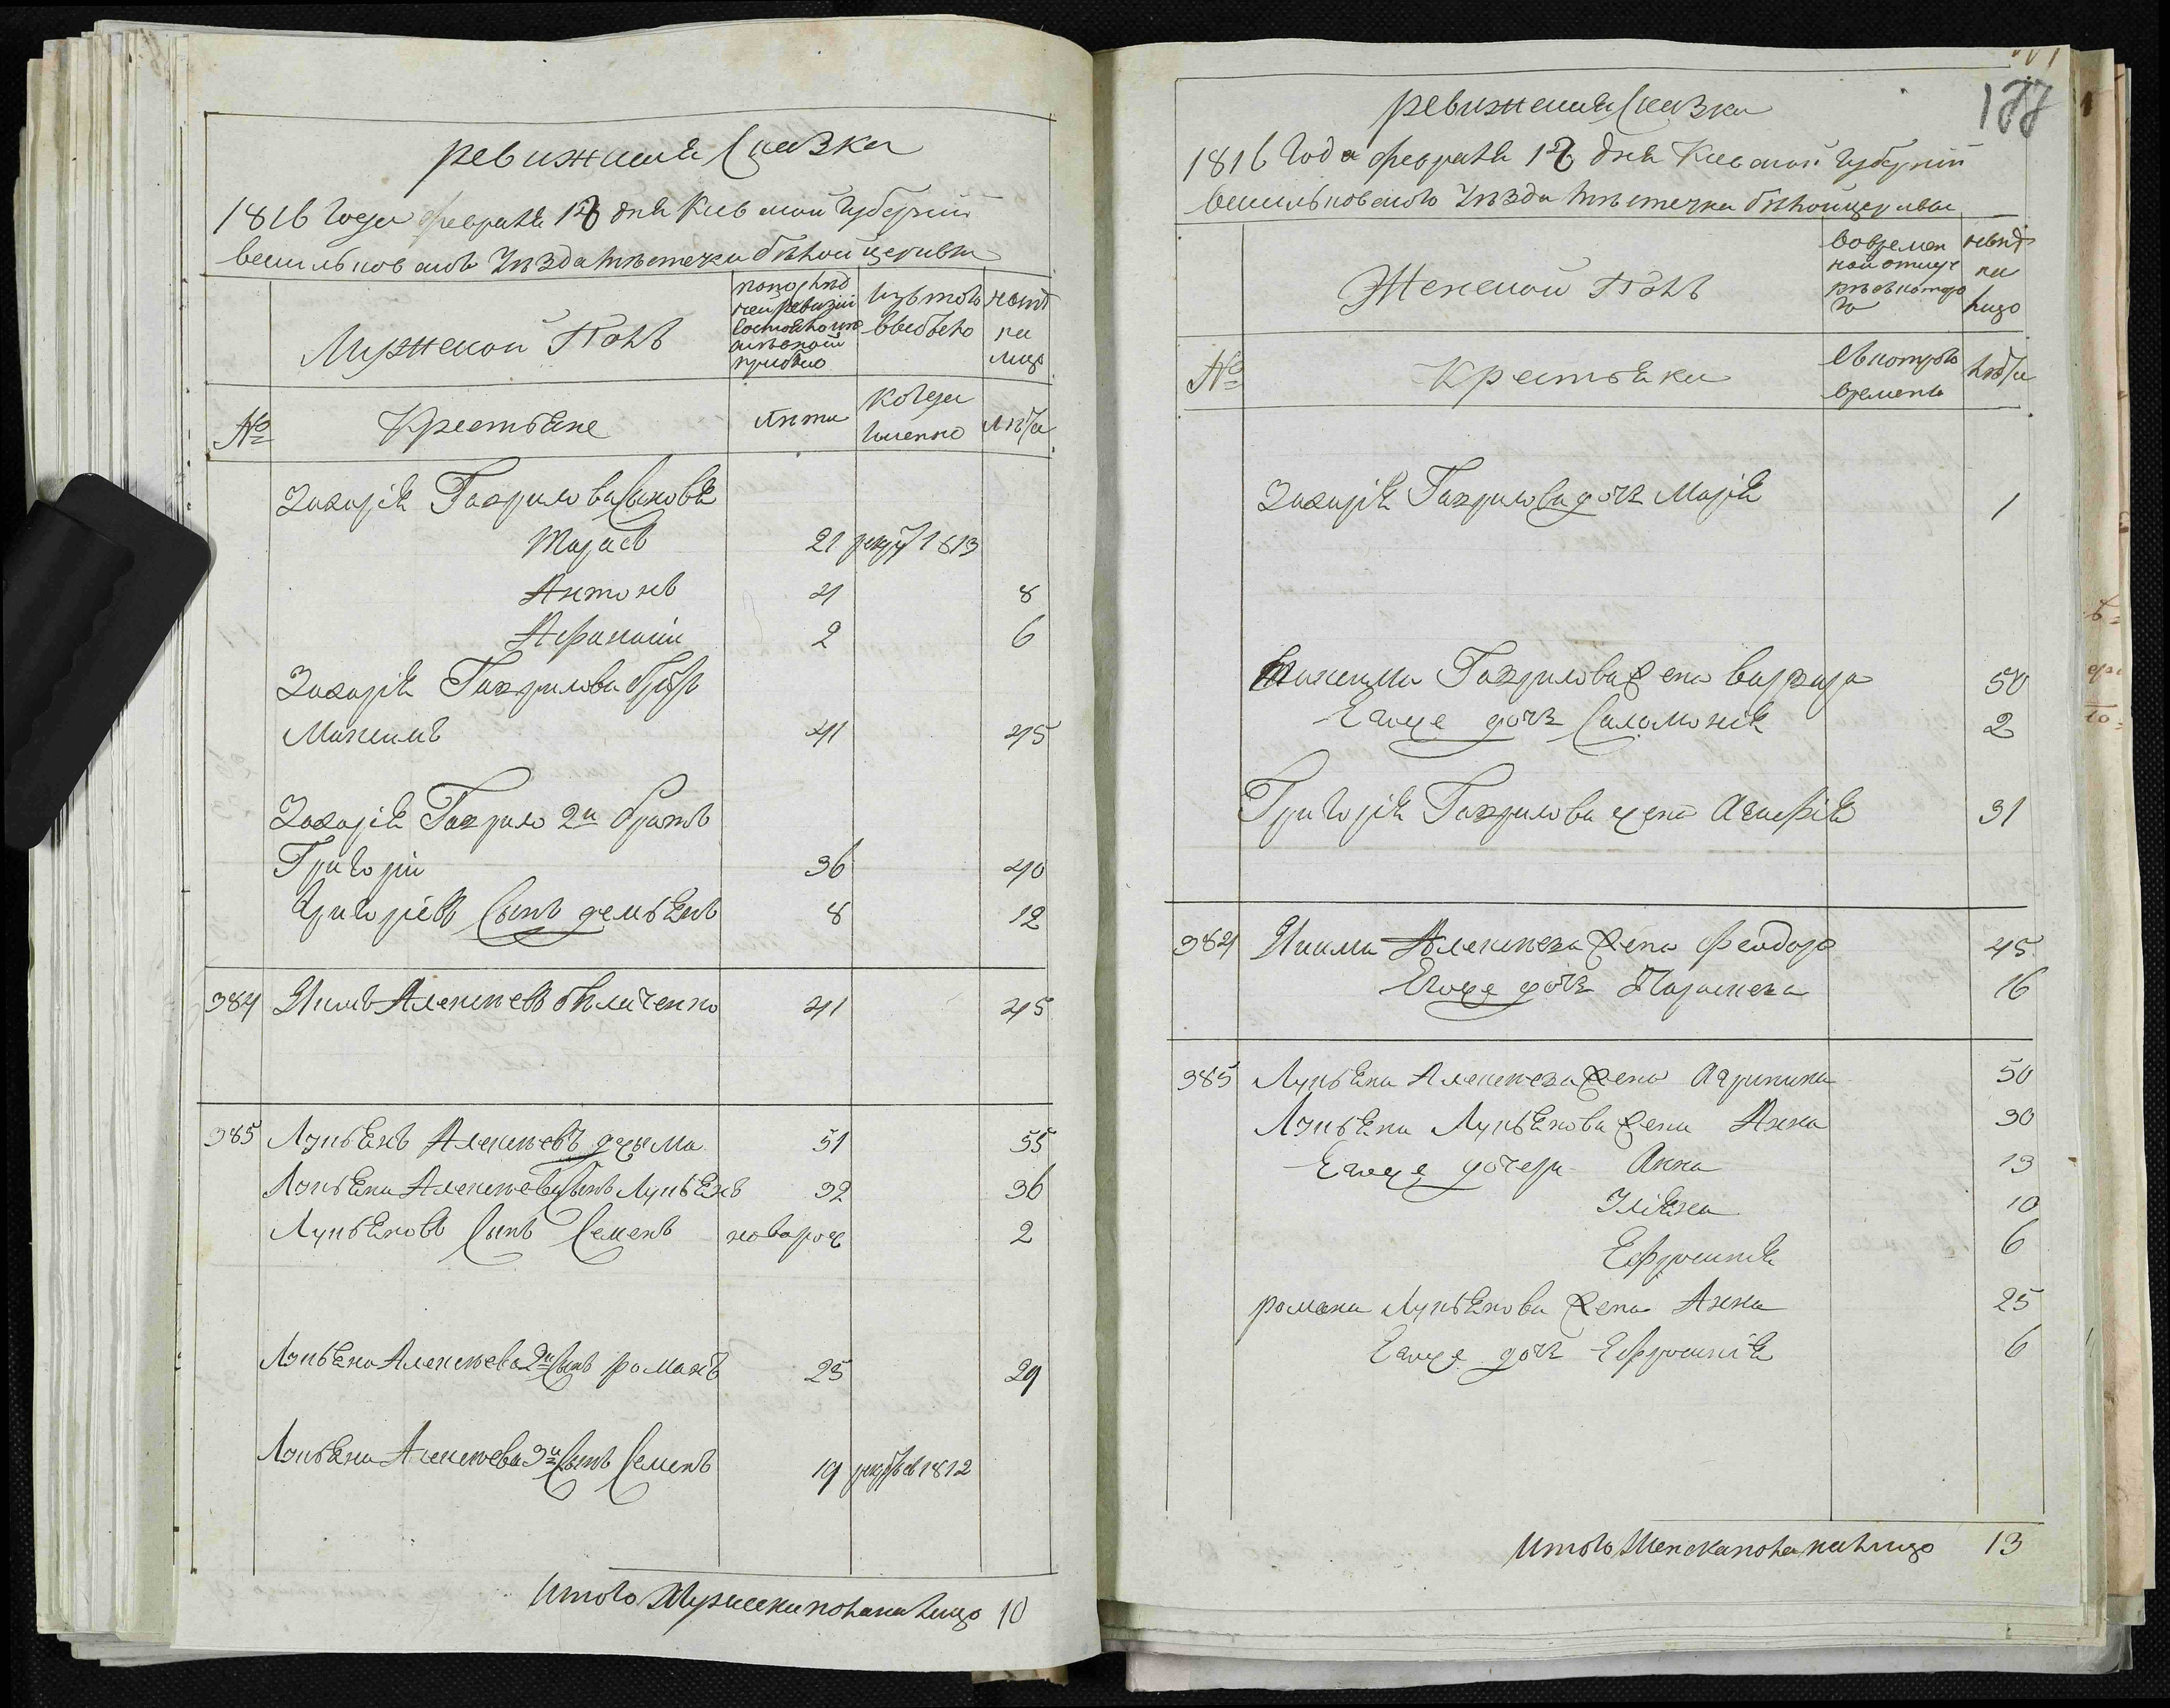 ревижская Сказка
1816 Года февраля 18 дня Киевской Губернiи
васильковского Уѣзда мѣстечка бѣлой церкви
Мужеской Полъ
по послѣд
ней ревизiи
состояло и
послѣ оной
прибыло
изъ того
выбыло
нынѣ
на
лицо
№
Крестьяне
лѣта
когда
именно
лѣта
Захарiя Гаврилова Сыновя
Тарасъ 21 рекрут 1813
Антонъ 4 8
Афанасiй 2 6
Захарiя Гаврилова братъ
Максимъ 41 45
Захарiя Гаврило 2й братъ
Григорiй 36 40
Григорiевъ Сынъ демьянъ 8 12
384 Якимъ Алексѣевъ бѣличенко 41 45
385 Лукьянъ Алексѣевъ 51 55
Лукьяна Алексѣева Сынъ Лукьянъ 32 36
Лукьяновъ Сынъ Семенъ новорож 2
Лукьяна Алексѣева 2й Сынъ романъ 25 29
Лукьяна Алексѣева 3й Сынъ Семенъ 19 рекрутъ в 1812
Итого Мужеска пола на лицо 10
177
ревижская Сказка
1816 Года февраля 18 дня Киевской Губернiи
васильковского Уѣзда мѣстечка бѣлой церкви
Женской Полъ
во времен
ной отлуч
нынѣ
на
лицо
№
Крестьянки
съ котораго
времени
лѣта
Захарiя Гаврилова дочь Марiя 1
Максима Гаврилова жена варвара 50
Егоже дочь Саломонiя 2
Григорiя Гаврилова жена Агафiя 31
384 Якима Алексѣева жена Феодора 45
Егоже дочь Параскева 16
385 Лукьяна Алексѣева жена Агрипина 50
Лукьяна Лукьянова жена Анна 30
Егоже дочери Анна 13
Улiяна 10
Ефросинiя 6
романа Лукьянова жена Анна 25
Егоже дочь Ефросинiя 6
Итого Женска пола на лицо 13